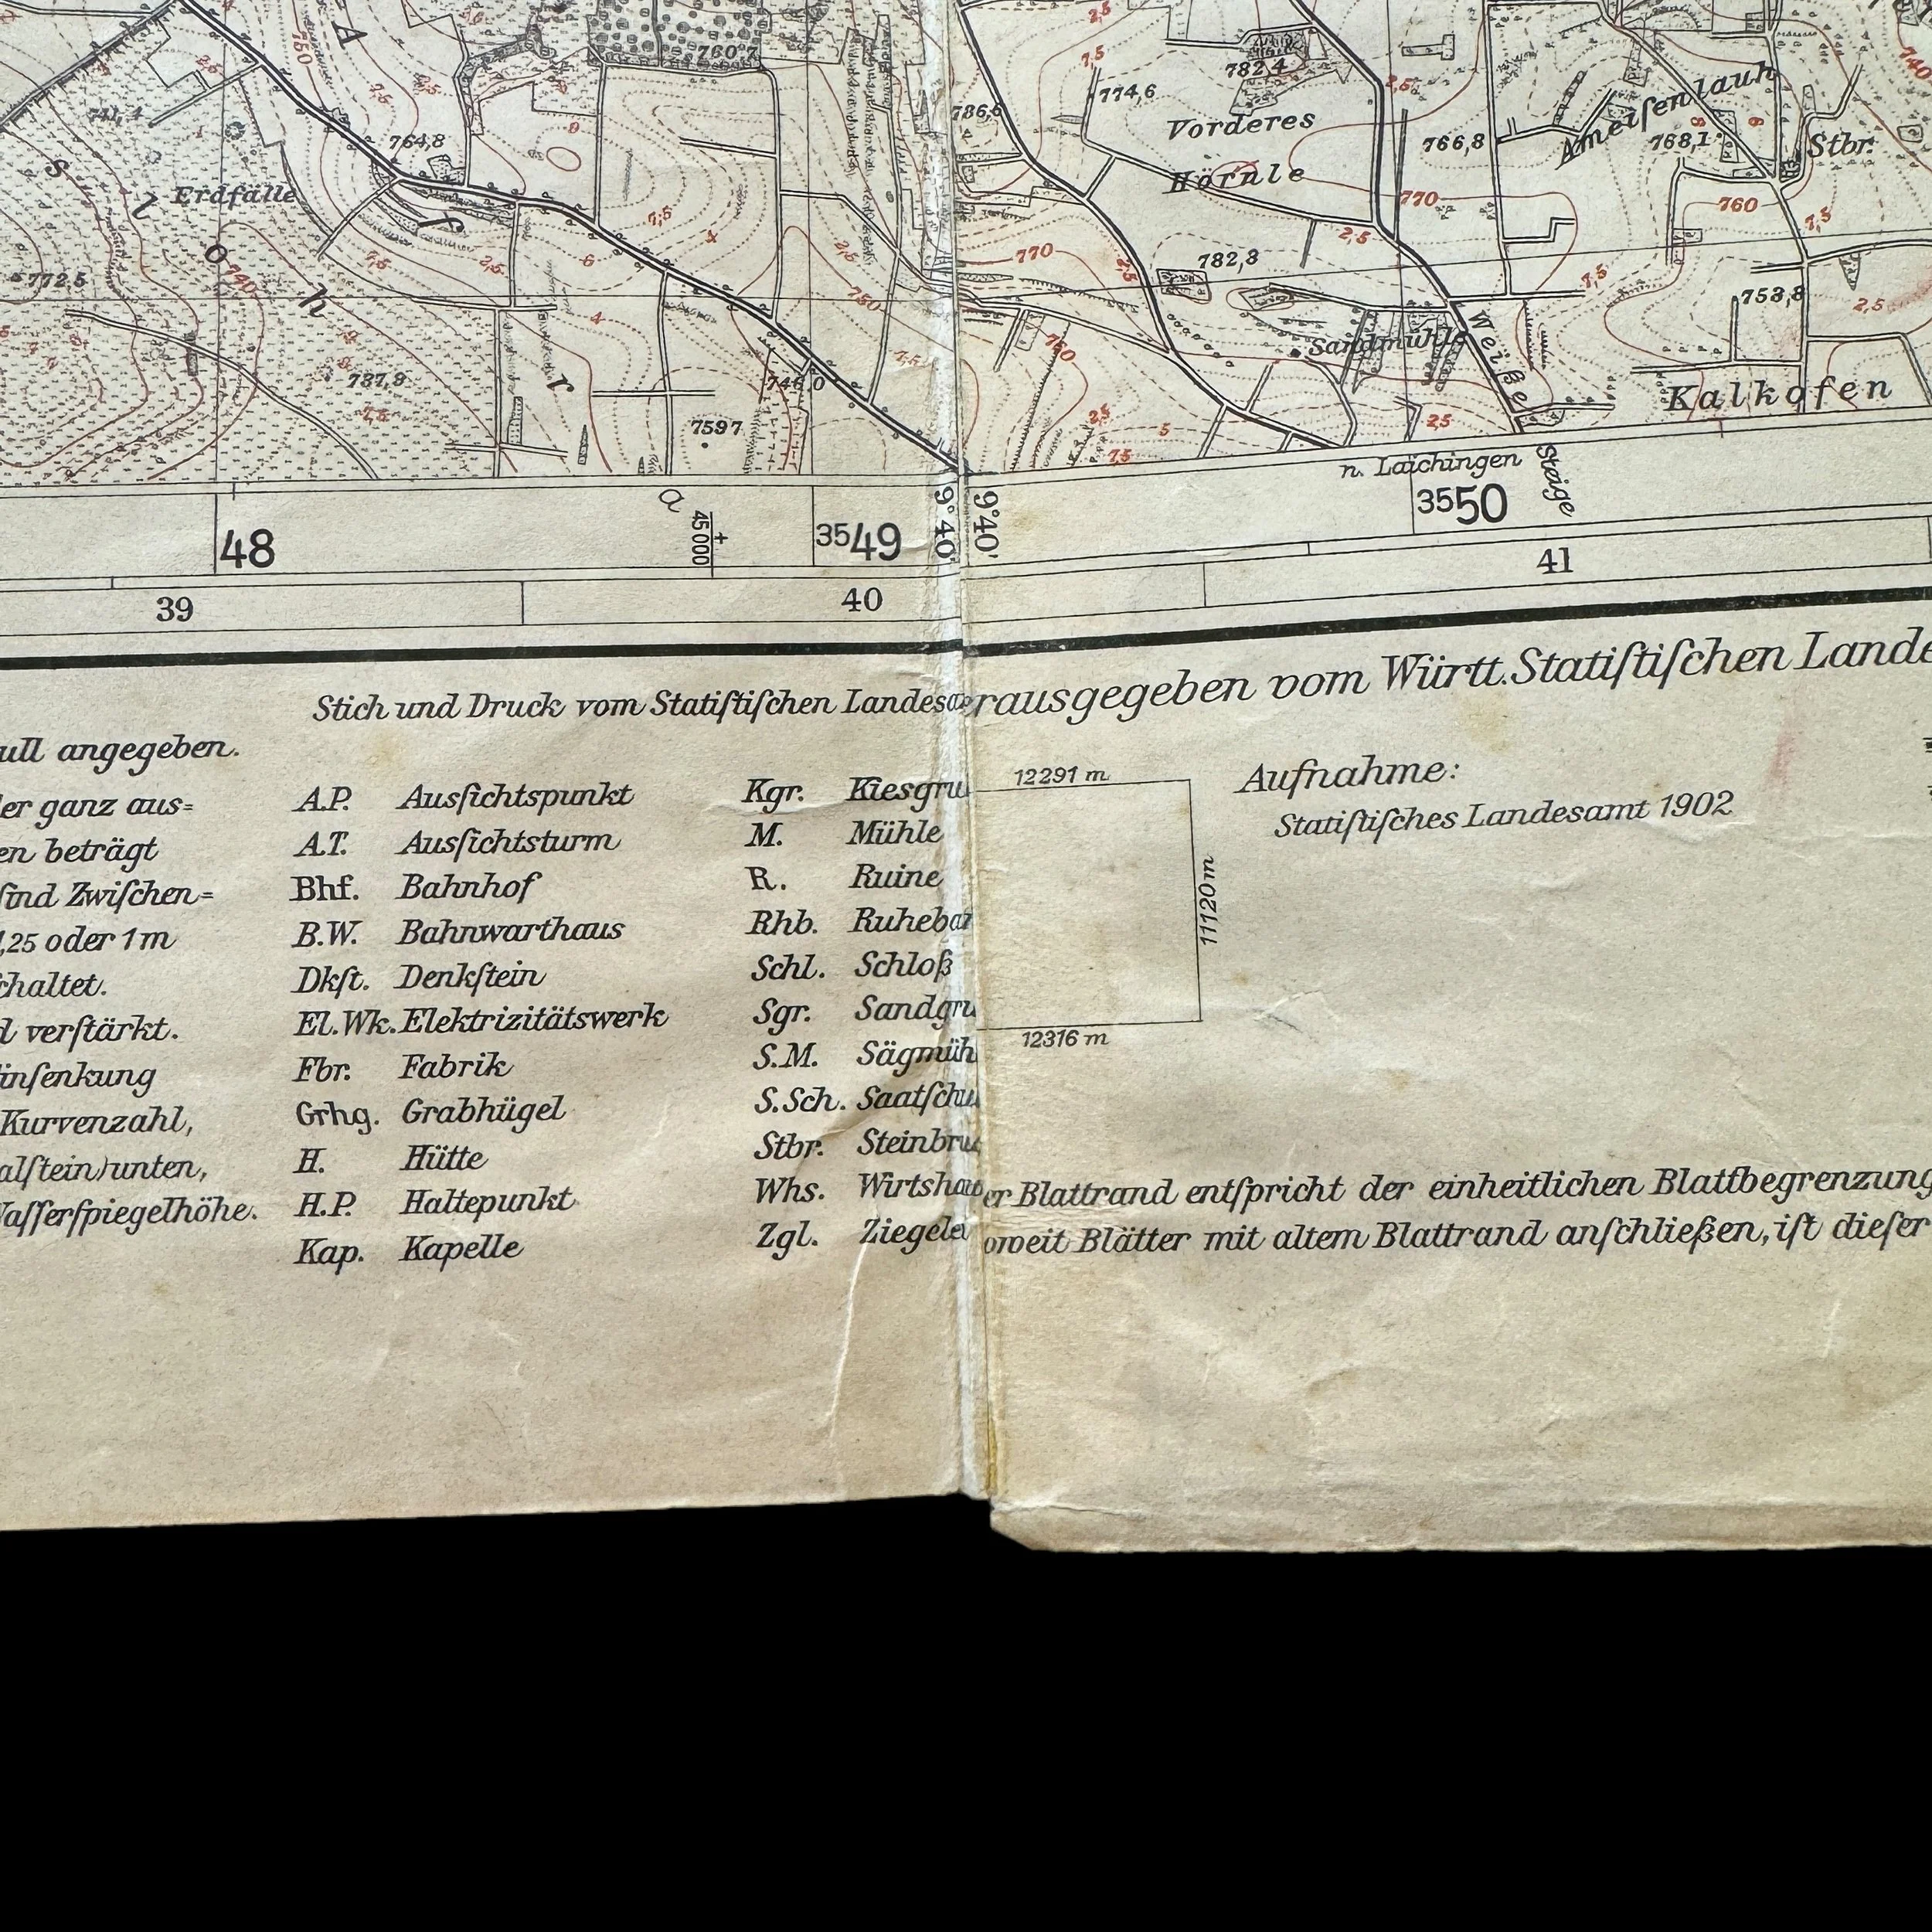 A
750
760,7
2,5
774,6
782,4
786,6
Vorderes
Hörnle
766,8
Ameiſenlauh
768,1
Stbr.
740
741,4
764,8
Erdfälle
s l o h
f
r
772,5
740
787,8
7,5
2,5
6
4
7,5
2,5
750
770
782,8
2,5
770
760
7,5
753,8
2,5
746,0
759,7
760
Sandmühle
Weiße
Steige
Kalkofen
2,5
5
7,5
n. Laichingen
a
48
45 000
+
3549
9°40'
9°40'
3550
39
40
41
Stich und Druck vom Statiſtiſchen Landesa
rausgegeben vom Württ. Statiſtiſchen Lande
ull angegeben.
er ganz aus=
en beträgt
ſind Zwiſchen=
1,25 oder 1 m
chaltet.
d verſtärkt.
inſenkung
Kurvenzahl,
alſtein) unten,
aſſerſpiegelhöhe.
A.P. Ausſichtspunkt
A.T. Ausſichtsturm
Bhf. Bahnhof
B.W. Bahnwarthaus
Dkſt. Denkſtein
El.Wk. Elektrizitätswerk
Fbr. Fabrik
Grhg. Grabhügel
H. Hütte
H.P. Haltepunkt
Kap. Kapelle
Kgr. Kiesgru
M. Mühle
R. Ruine
Rhb. Ruheba
Schl. Schloß
Sgr. Sandgru
S.M. Sägmüh
S.Sch. Saatſchu
Stbr. Steinbru
Whs. Wirtshau
Zgl. Ziegele
12291 m
11120 m
12316 m
Aufnahme:
Statiſtiſches Landesamt 1902
er Blattrand entſpricht der einheitlichen Blattbegrenzung
oweit Blätter mit altem Blattrand anſchließen, iſt dieſer